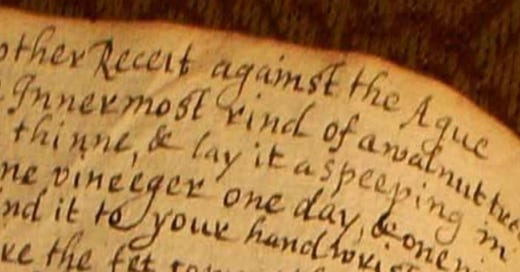 other Receit against the Ague
Innermost rind of a walnut tree
thinne, & lay it a speeping in
ine vineeger one day, & one
ind it to your handwrist
ke the fet